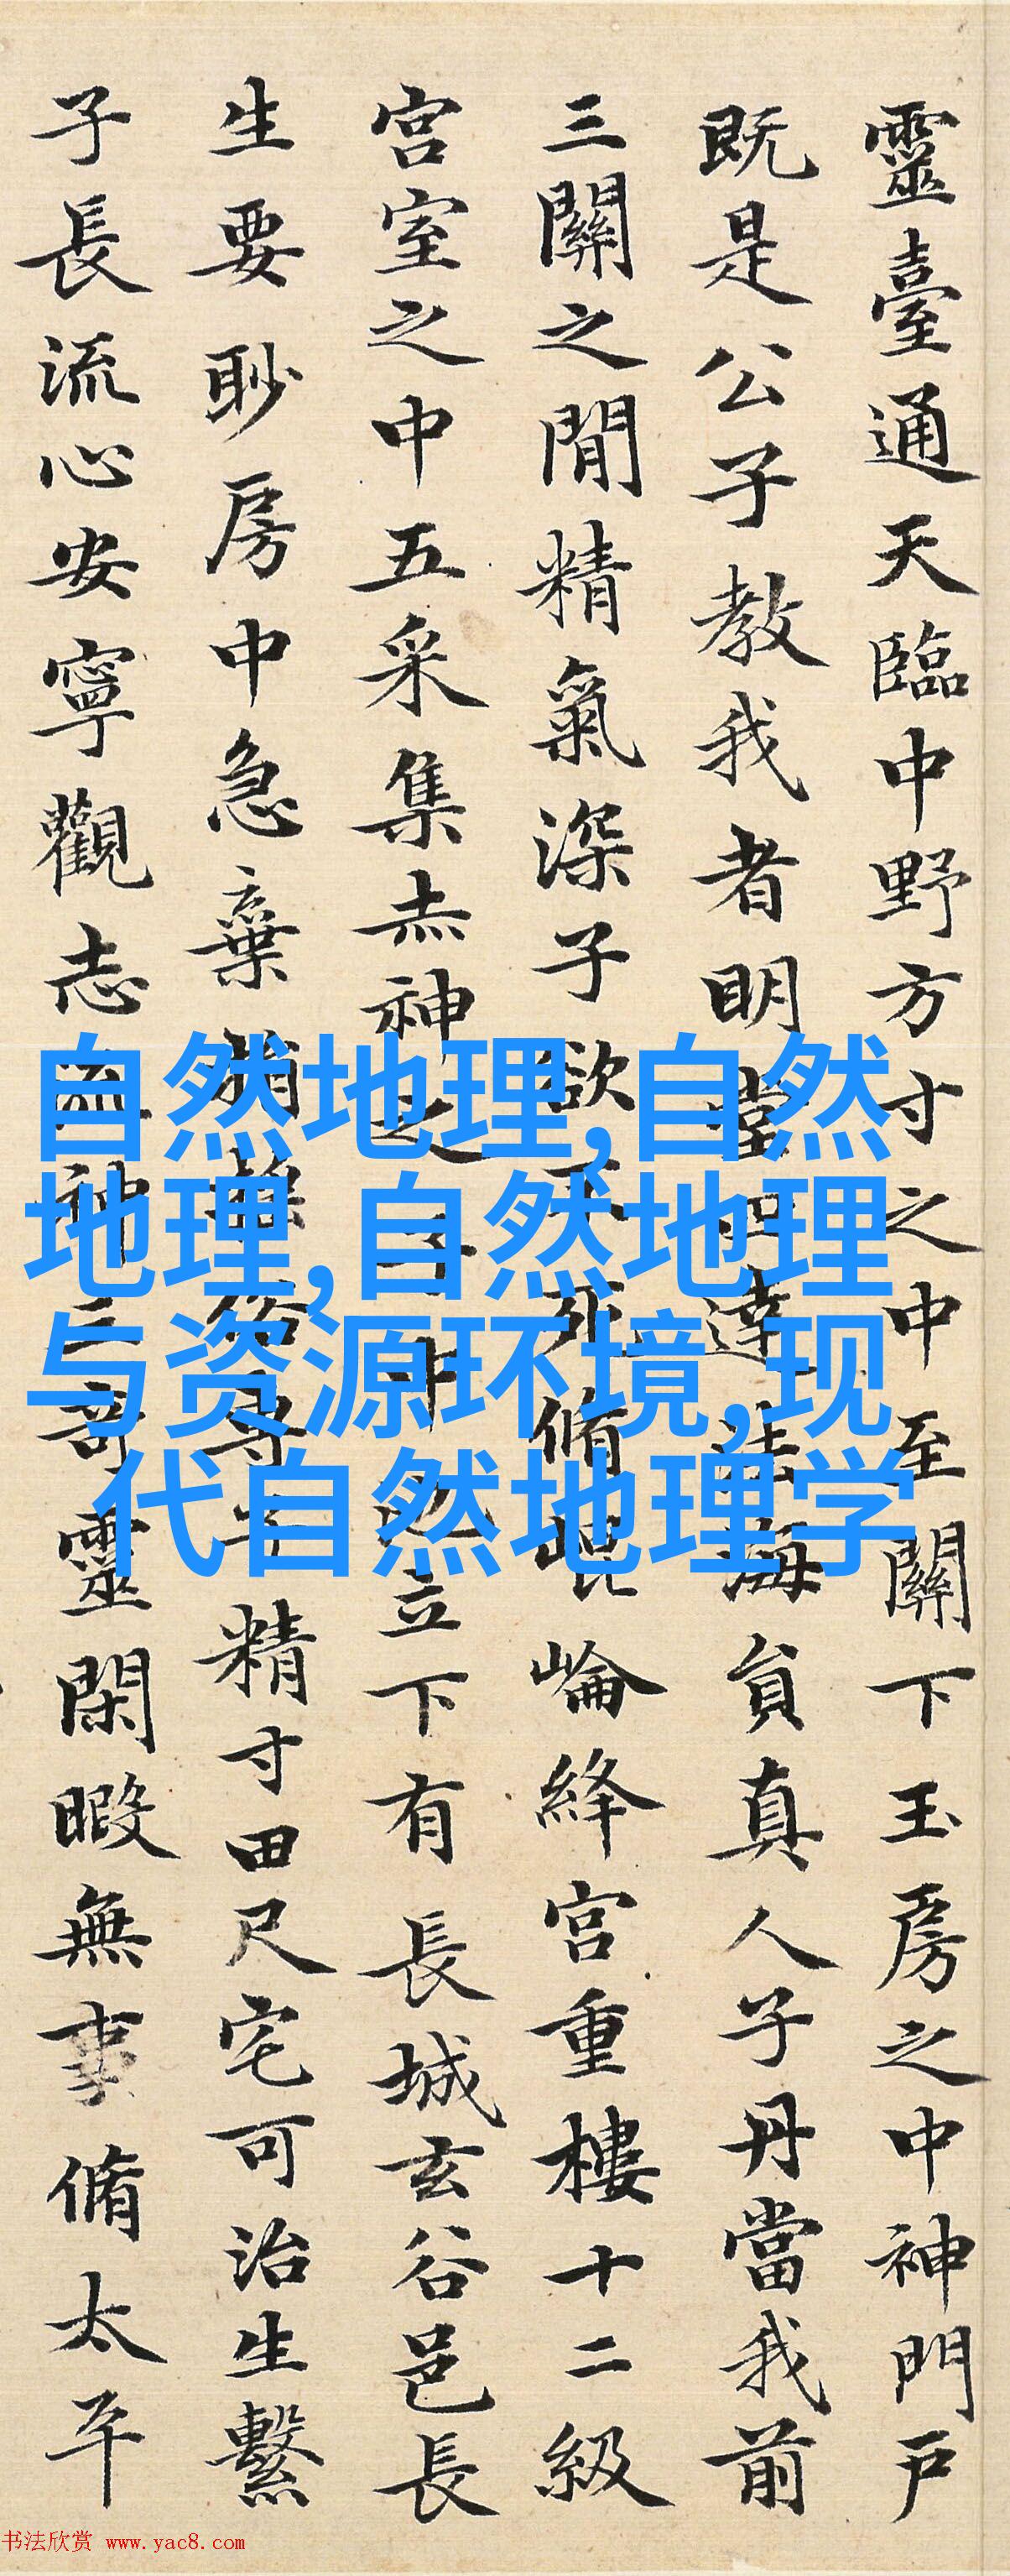 靈臺通天臨中野方寸之中至關下玉房之中神門戶
既是公子教我者明堂四達法海負真人子丹當我前
三關之閒精氣深子欲不死脩崐崘絳宮重樓十二級
宮室之中五采集赤神之子中立下有長城玄谷邑長
生要眇房中急棄捐俗專子精寸田尺宅可治生繫
子長流心安寧觀志流神三奇靈閑暇無事脩太平
自然地理,自然
地理,自然地理
与资源环境,现
代自然地理学
书法欣赏 www.yac8.com